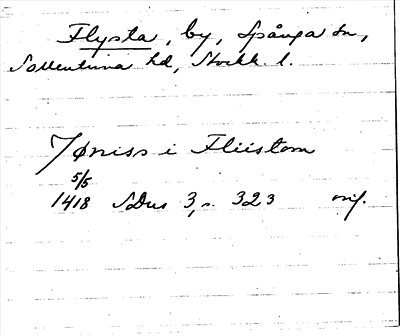 Flysta, by, Spånga sn,
Sollentuna hd, Stockh l.
Jønis i Fliistom
5/5
1418 SDns 3, s. 323 orig.